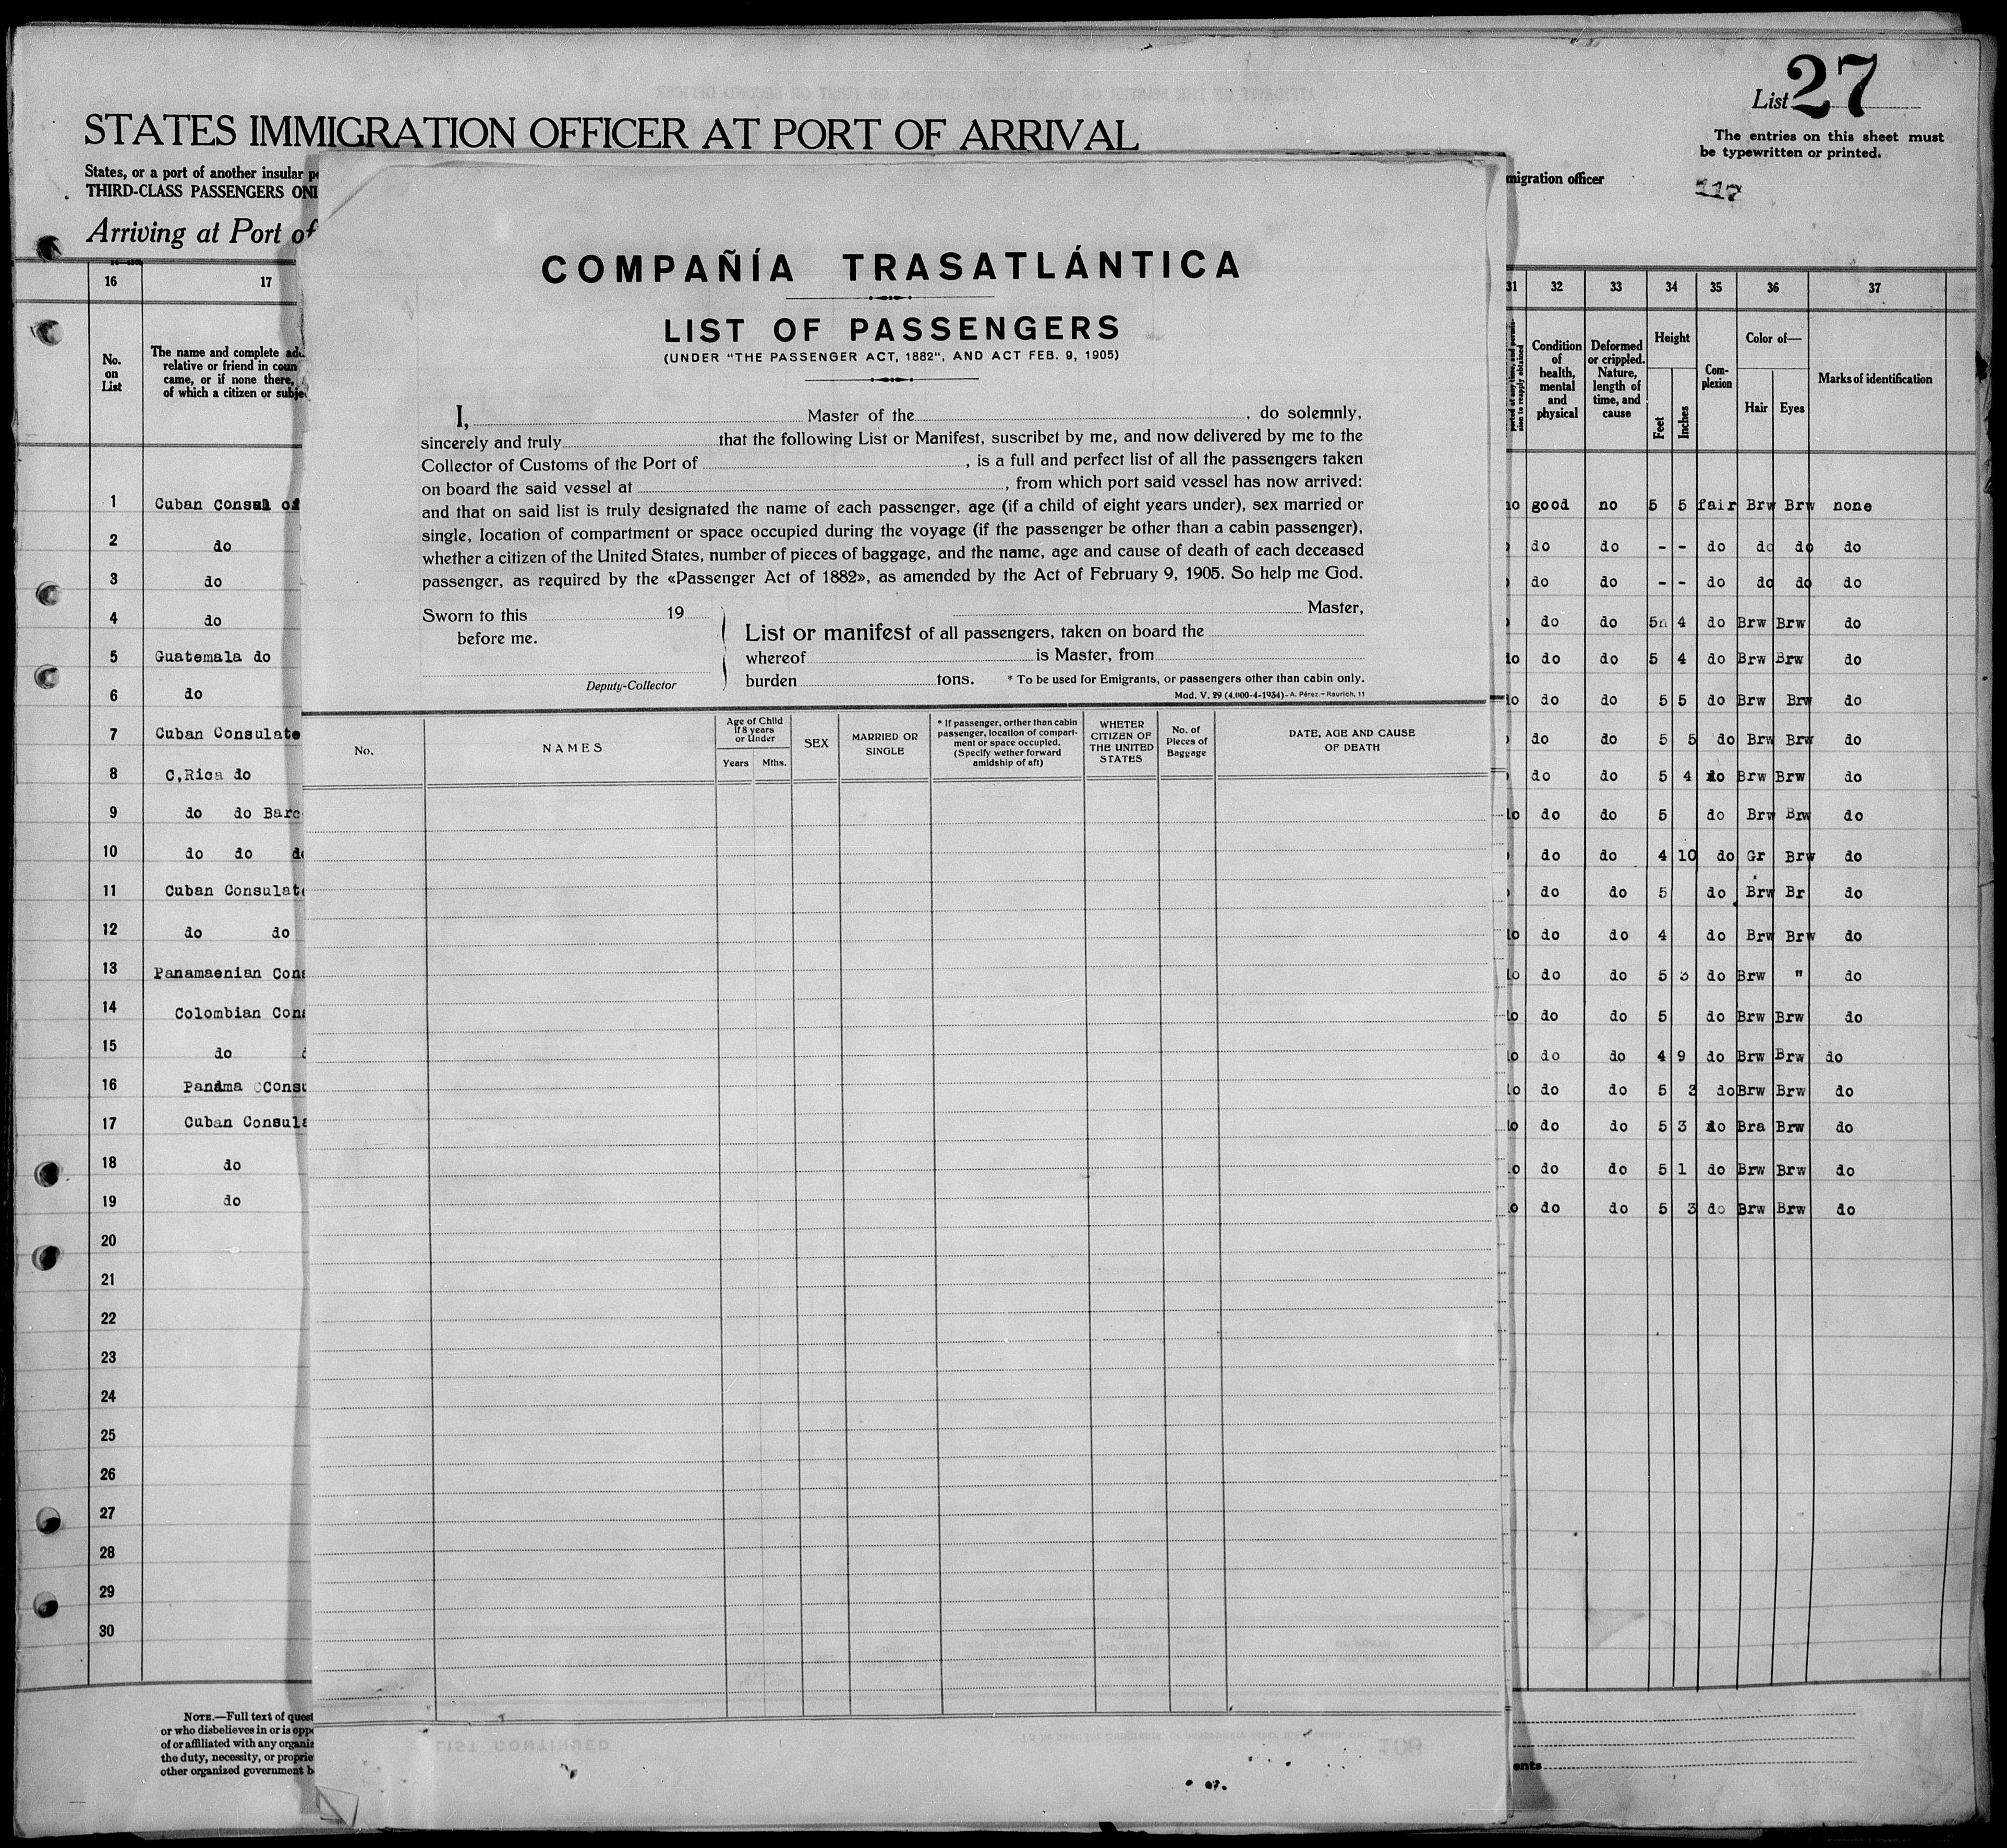 List 27
The entries on this sheet must
be typewritten or printed.
117
STATES IMMIGRATION OFFICER AT PORT OF ARRIVAL
States, or a port of another insular
THIRD-CLASS PASSENGERS
migration officer
Arriving at Port of
16 17
No.
on
List
The name and complete
relative or friend in
came, or if none there,
of which a citizen or
COMPAÑÍA TRASATLÁNTICA
LIST OF PASSENGERS
(UNDER "THE PASSENGER ACT, 1882", AND ACT FEB. 9, 1905)
I, Master of the , do solemnly,
sincerely and truly that the following List or Manifest, suscribet by me, and now delivered by me to the
Collector of Customs of the Port of , is a full and perfect list of all the passengers taken
on board the said vessel at , from which port said vessel has now arrived:
and that on said list is truly designated the name of each passenger, age (if a child of eight years under), sex married or
single, location of compartment or space occupied during the voyage (if the passenger be other than a cabin passenger),
whether a citizen of the United States, number of pieces of baggage, and the name, age and cause of death of each deceased
passenger, as required by the «Passenger Act of 1882», as amended by the Act of February 9, 1905. So help me God.
Sworn to this 19
before me.
Deputy-Collector
Master,
List or manifest of all passengers, taken on board the
whereof is Master, from
burden tons. * To be used for Emigrants, or passengers other than cabin only.
Mod. V. 29 (4.000-4-1934)-A. Pérez.-Raurich, 11
No.
NAMES
Age of Child
If 8 years
or Under
Years Mths.
SEX
MARRIED OR
SINGLE
* If passenger, orther than cabin
passenger, location of compart-
ment or space occupied.
(Specify wether forward
amidship of aft)
WHETER
CITIZEN OF
THE UNITED
STATES
No. of
Pieces of
Baggage
DATE, AGE AND CAUSE
OF DEATH
31 32 33 34 35 36 37
Condition
of
health,
mental
and
physical
Deformed
or crippled.
Nature,
length of
time, and
cause
Height
Feet Inches
Com-
plexion
Color of—
Hair Eyes
Marks of identification
1 Cuban Consul of
2 do
3 do
4 do
5 Guatemala do
6 do
7 Cuban Consulate
8 C,Rica do
9 do do
10 do do
11 Cuban Consulate
12 do do
13 Panamaenian
14 Colombian
15 do
16 Panama
17 Cuban
18 do
19 do
20
21
22
23
24
25
26
27
28
29
30
no good no 5 5 fair Brw Brw none
do do - - do do do do
do do - - do do do do
do do 5 4 do Brw Brw do
do do do 5 4 do Brw Brw do
do do do 5 5 do Brw Brw do
do do 5 5 do Brw Brw do
do do 5 4 do Brw Brw do
do do do 5 do Brw Brw do
do do 4 10 do Gr Brw do
do do 5 do Brw Br do
do do do 4 do Brw Brw do
do do do 5 3 do Brw " do
do do do 5 do Brw Brw do
do do do 4 9 do Brw Brw do
do do do 5 3 do Brw Brw do
do do do 5 3 do Bra Brw do
do do 5 1 do Brw Brw do
do do 5 3 do Brw Brw do
NOTE.—Full text of
or who disbelieves in or is
of or affiliated with any
the duty, necessity, or
other organized government